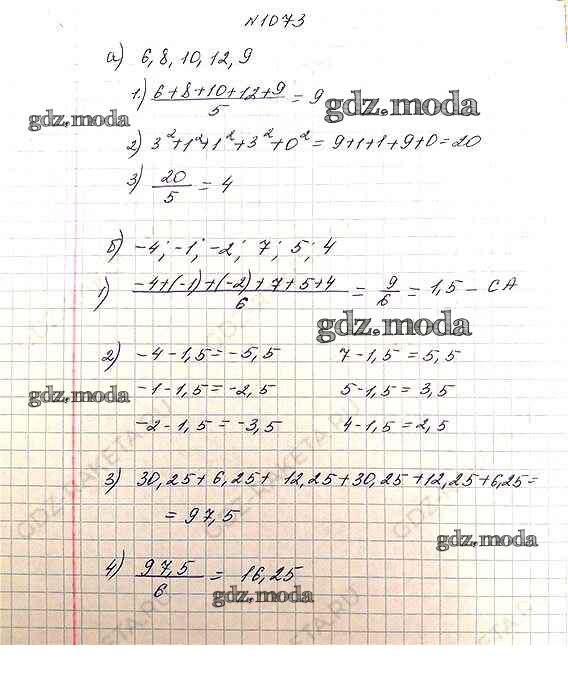 №1073
а) 6, 8, 10, 12, 9
1) (6+8+10+12+9)/5 = 9
gdz.moda
gdz.moda
2) 3²+1²+1²+3²+0² = 9+1+1+9+0=20
3) 20/5 = 4
б) -4; -1; -2; 7; 5; 4
1) (-4+(-1)+(-2)+7+5+4)/6 = 9/6 = 1,5 - СА
gdz.moda
2) -4-1,5=-5,5 7-1,5=5,5
-1-1,5=-2,5 5-1,5=3,5
gdz.moda
-2-1,5=-3,5 4-1,5=2,5
3) 30,25+6,25+12,25+30,25+12,25+6,25=
= 97,5
gdz.moda
4) 97,5/6 = 16,25
gdz.moda
GDZ-RAKETA.RU